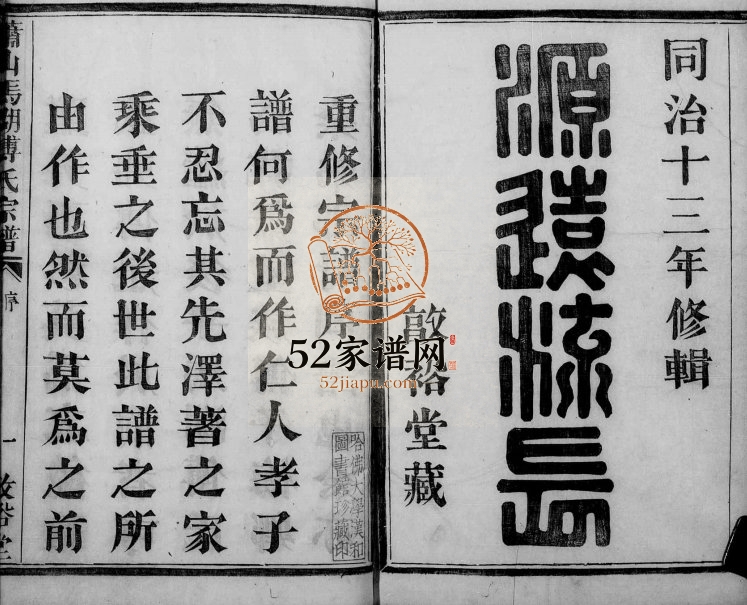 同治十三年修輯
源遠流長
敦裕堂藏
重修宗譜序
譜何爲而作仁人孝子
不忍忘其先澤著之家
乘垂之後世此譜之所
由作也然而莫爲之前
蕭山馬湖傅氏宗譜
序
一
敦裕堂
哈佛大學漢和
圖書館珍藏印
52家谱网
52jiapu.com